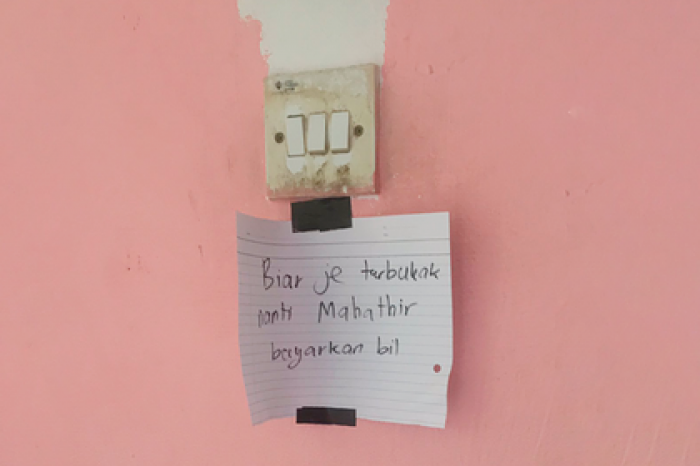 Biar je terbukak
nanti Mahathir
bayarkan bil